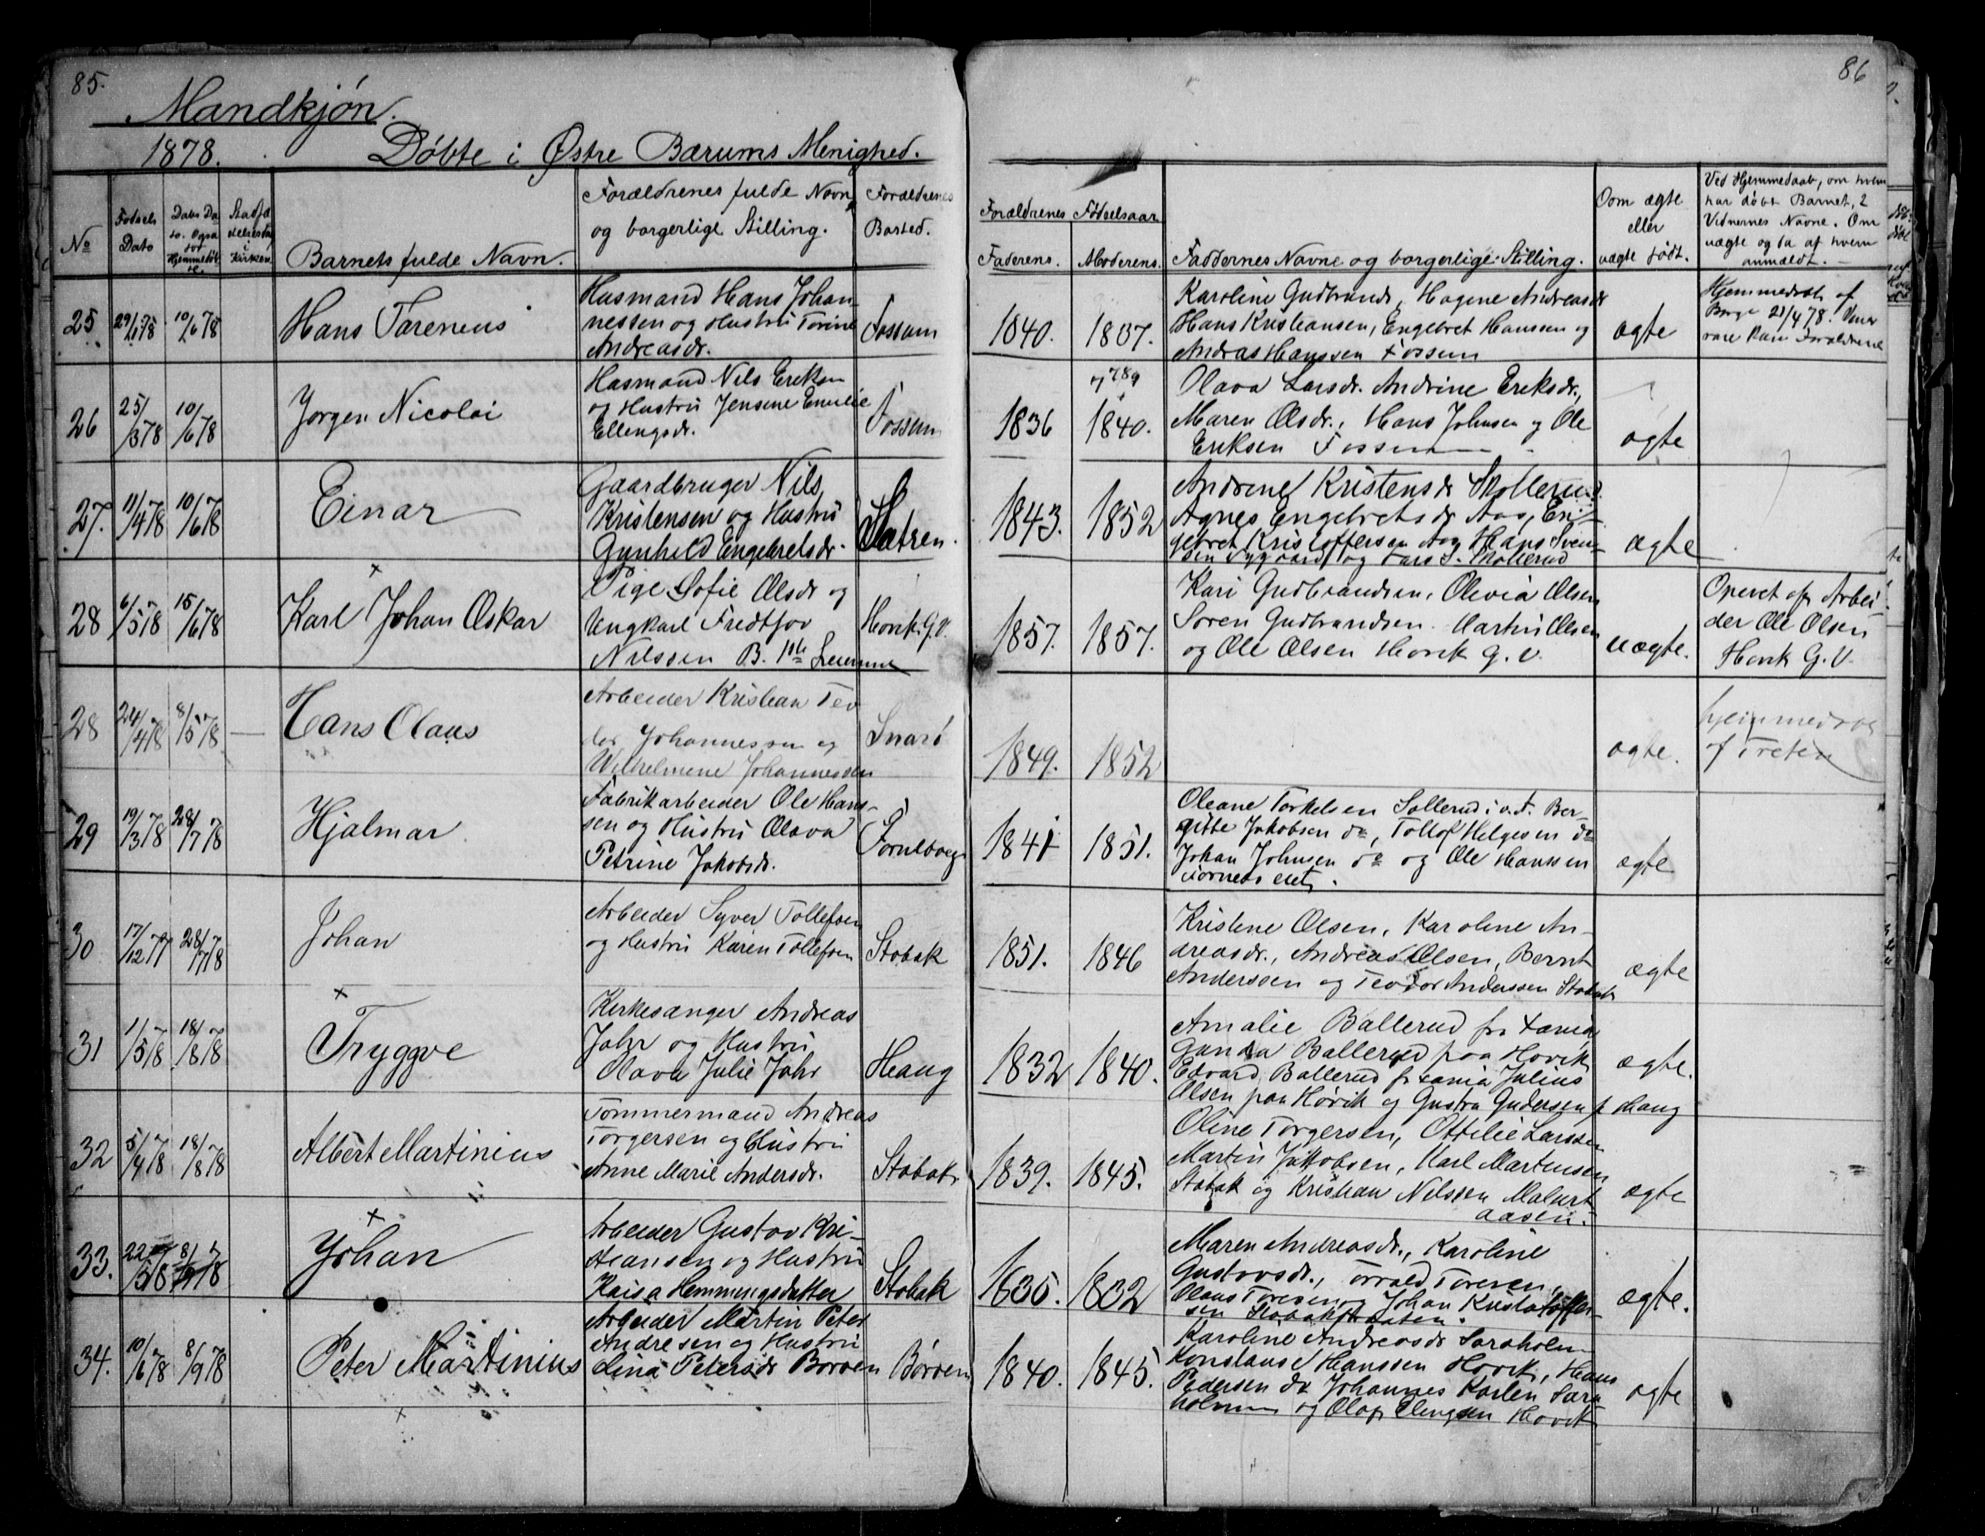 85.
Mandkjøn.
1878. Døbte i Østre Bærums Menighed.
No
Fødsels Dato
Barnets fulde Navn.
Forældrenes fulde Navn
og borgerlige Stilling.
Forældrenes
Bosted.
25 10/6 78
Hans Tarenius
Husmand Hans Johan-
nessen og Hustru Torine
Andreasdr.
Fossum
26 25/3 78 10/6 78
Jørgen Nicolai
Husmand Nils Eriksen
og Hustru Jensine Emilie
Ellingsdr.
Fossum
27. 11/4 78 10/6 78
Einar
Gaardbruger Nils
Kristensen og Hustru
Gunhild Engebretsdr.
Sætren.
28 6/5 78 15/6 78
Karl Johan Oskar
Pige Sofie Olsdr og
Ungkarl Fredtjov
Nilssen B. 1ste
Høvik. G.V.
28 24/4 78 8/5 78 —
Hans Olaus
Arbeider Kristian Teo
dor Johannessen og
Wilhelmine Johannessen
Snarø
29 19/3 78 28/7 78
Hjalmar
Fabrikarbeider Ole Hans-
sen og Hustru Olava
Petrine Jakobsdr.
30 17/12 77 28/7 78
Johan
Arbeider Syver Tollefsen
og Hustru Karen Tollefsen
Stabak
31 1/5 78 18/8 78
Tryggve
Kirkesanger Andreas
Jahr og Hustru
Olava Julie Jahr
Haug
32 5/4 78 18/8 78
Albert Martinius
Tømmermand Andreas
Torgersen og Hustru
Anne Marie Andersdr.
Stabak
33. 22/5 78
Johan
Arbeider Gustav Kri-
stiansen og Hustru
Kaisa Hemmingsdatter
Stabak
34. 10/6 78 8/9 78
Peter Martinius
Arbeider Martin Peter
Andresen og Hustru
Lina Petersdr Børøen
Børøen
86
Forældrenes Fødselsaar
Faderens. Moderens.
Faddernes Navne og borgerlige Stilling.
Om ægte
eller
uægte født.
Ved Hjemmedaab, om hvem
har døbt Barnet, 2
Vidnernes Navne. Om
uægte og da af hvem
anmeldt.
1840. 1837.
Karoline Gudbrands, Hagine Andreasdr
Hans Kristiansen, Engebret Hanssen og
Andras Hanssen Fossum
ægte
Hjemmedøbt af
Borge 21/4 78.
Forældrene
1836 1840.
Olava Larsdr. Andrine Eriksdr,
Maren Olsdr., Hans Johnsen og Ole
Eriksen Fossum
ægte
1843. 1852
Andrine Kristensdr Mollerud
Agnes Engebretsdr Aas, En-
gebret Kristoffersen Aas, Hans Sven-
ægte
1857. 1857.
Kari Gudbrandsen, Olevia Olsen
Søren Gudbrandsen. Martin Olsen
og Ole Olsen Høvik G.V.
uægte.
Opgivet af Arbei-
der Ole Olsen
Høvik G.V.
1849. 1852
ægte.
hjemmedøbt
af Treten
1841 1851.
Oleane Torkelsen Sollerud i V.A. Ber-
gitte Jakobsen do, Tollof Helgesen do
Johan Johnsen do og Ole Hanssen
ægte
1851. 1846
Kristine Olsen, Karoline An-
dreasdr., Andreas Olsen, Bernt
Anderssen og Teodor Anderssen Stabak
ægte
1832 1840.
Amalie Ballerud fr
Ganda Ballerud paa Høvik
Edvard Ballerud Julius
Olsen paa Høvik og Gustva Gudersen p Haug
ægte.
1839. 1845.
Oline Torgersen, Ottilie Larssen
Martin Jakobsen, Karl Martinsen
Stabak og Kristian Nilssen Malurt
aasen.
ægte
1835. 1832
Maren Andreasdr., Karoline
Gustavsdr., Torvald Toresen,
Olaus Toresen Johan Kristoffer-
sen Stabak
ægte.
1840. 1845.
Karoline Andreasdr Saraholm
Konstanse Hanssen Høvik, Hans
Pedersen do Johannes Karlsen Sara
holmen og Olaf Elingsen Høvik
ægte